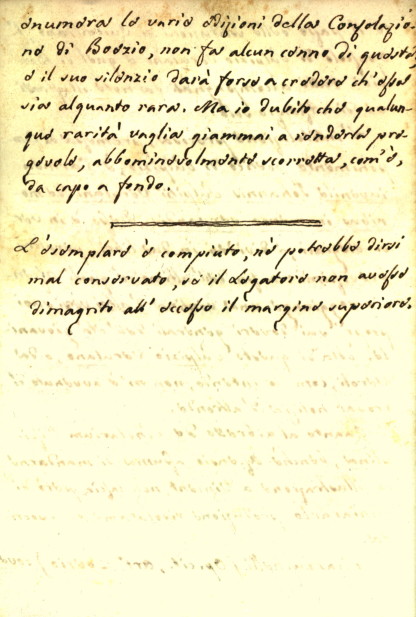 enumera le varie edizioni della Consolazio-
ne di Boezio, non fa alcun cenno di questa,
e il suo silenzio darà forse a credere ch'essa
sia alquanto rara. Ma io dubito che qualun-
que rarità vaglia giammai a renderla pre-
gevole, abbominevolmente scorretta, com'è,
da capo a fondo.
L'esemplare è compiuto, nè potrebbe dirsi
mal conservato, se il Legatore non avesse
dimagrito all'eccesso il margine superiore.